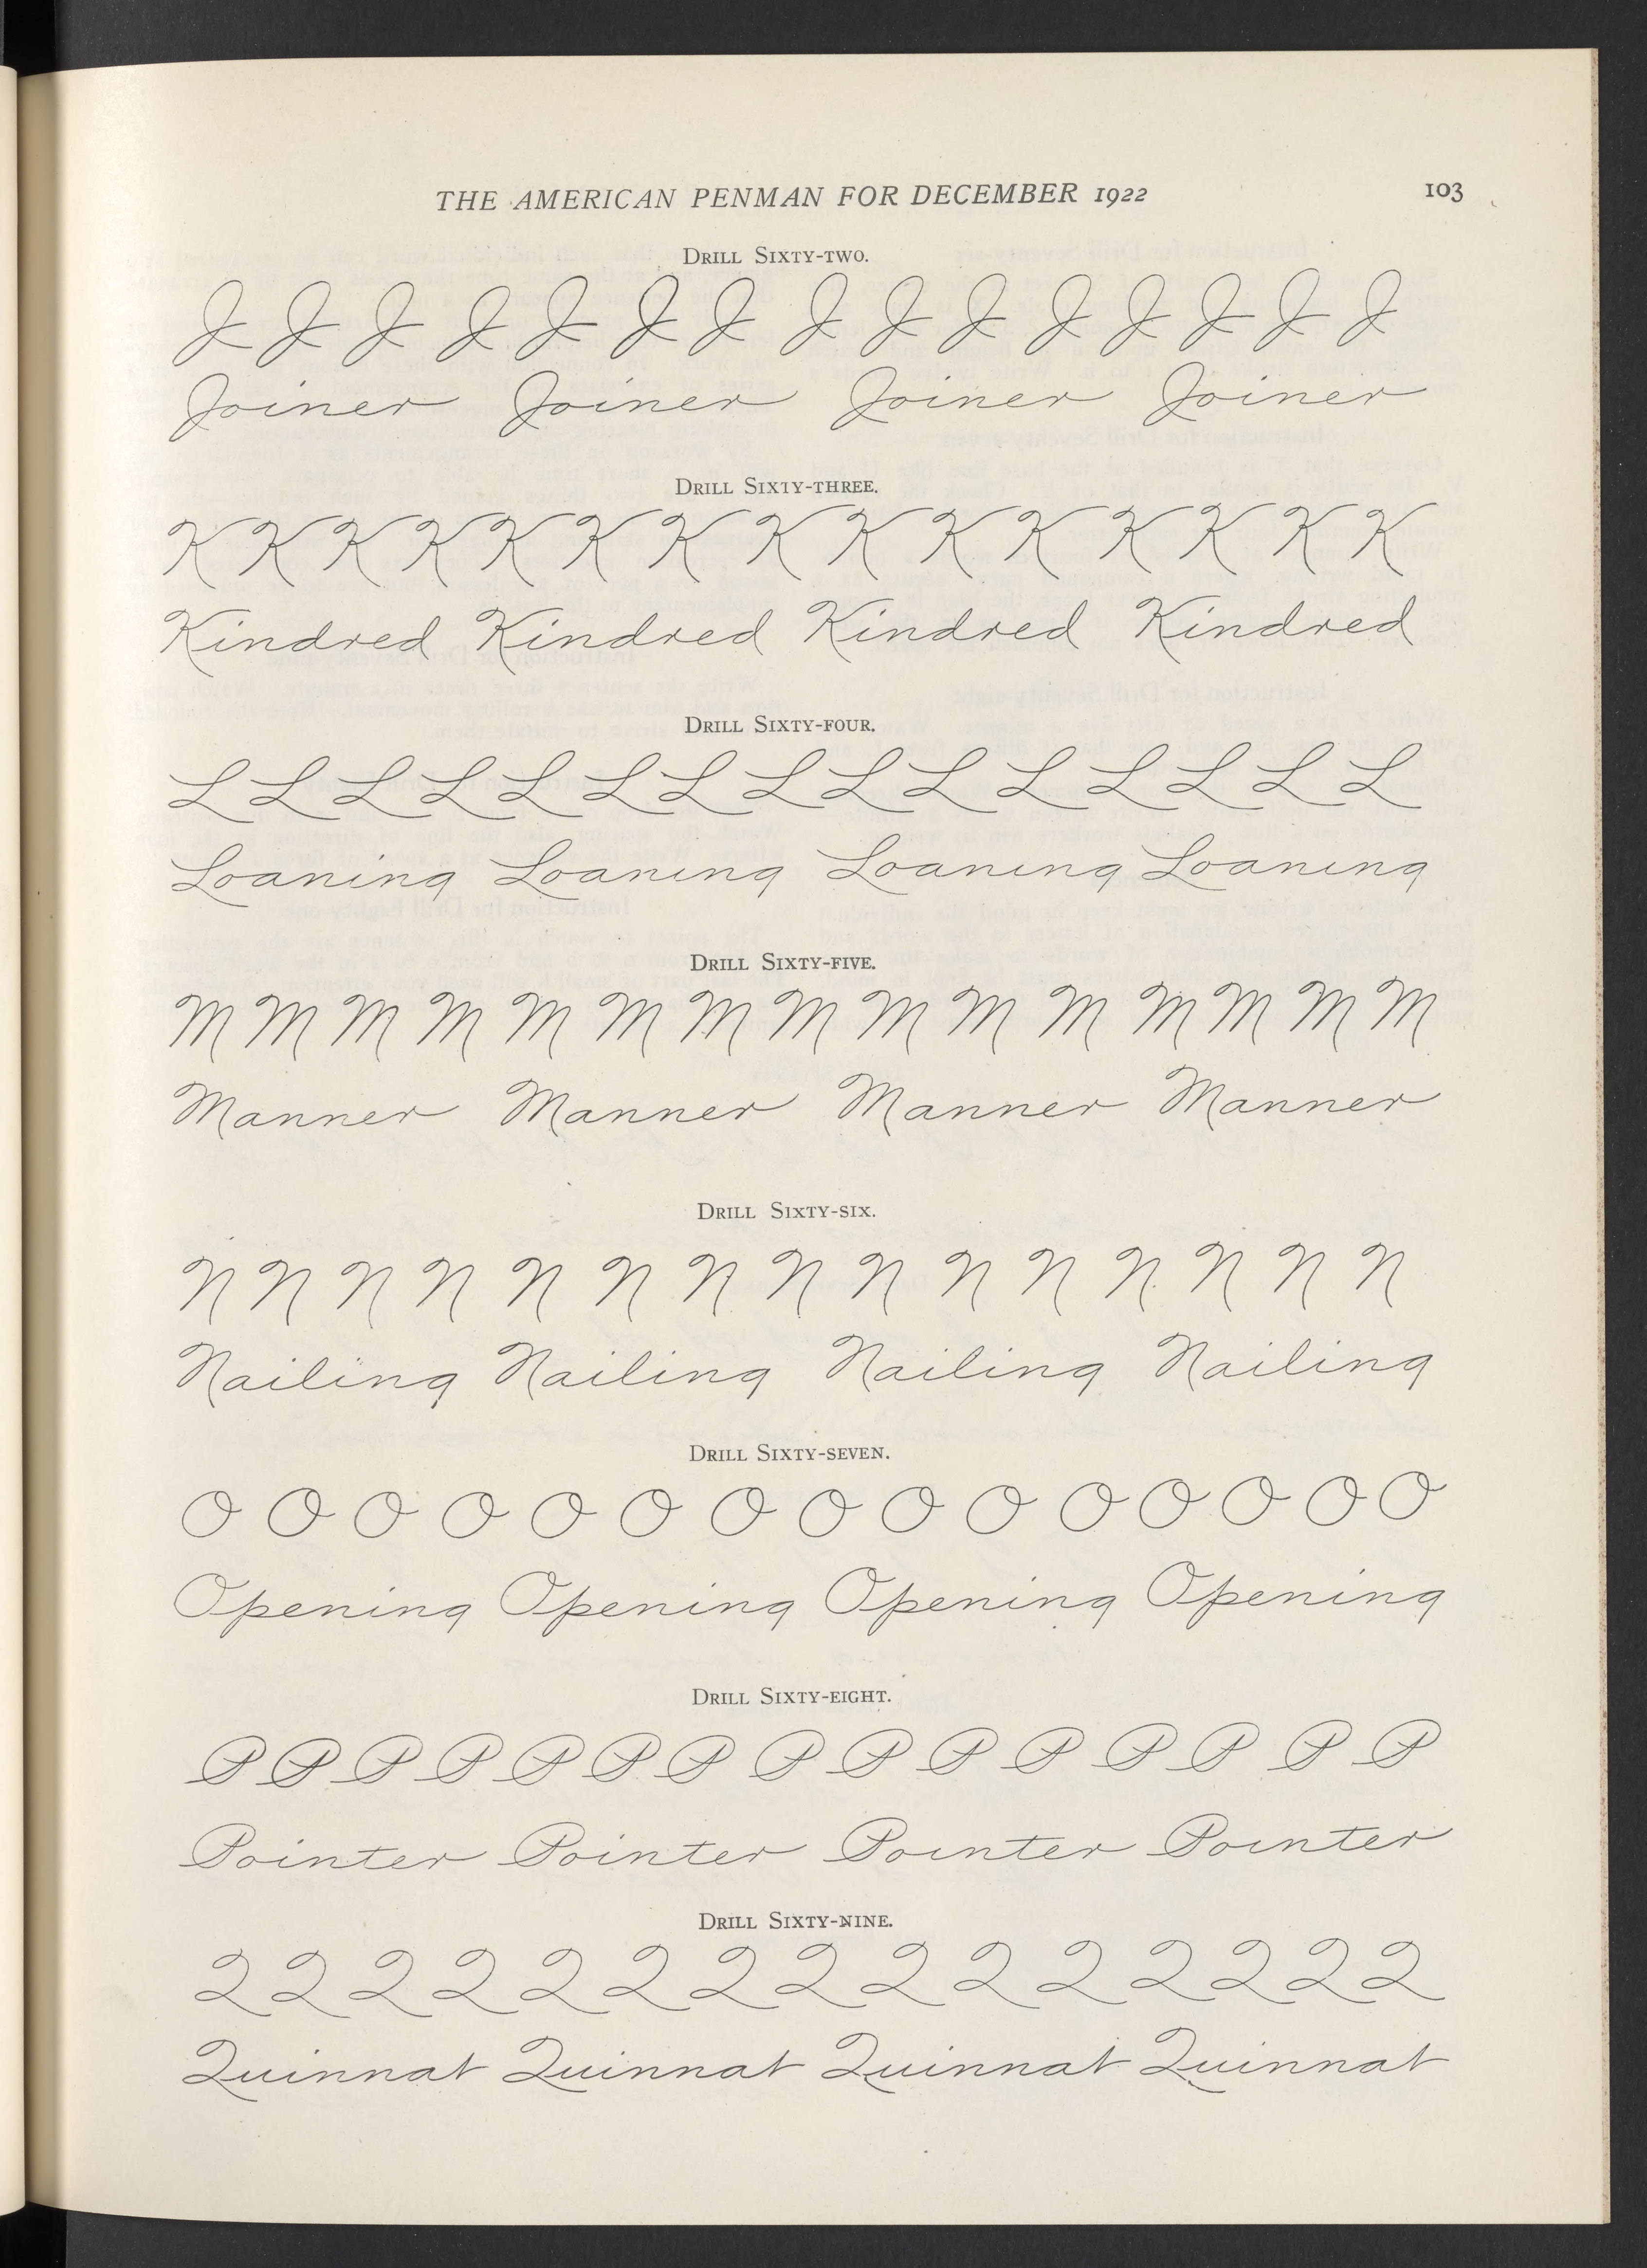 THE AMERICAN PENMAN FOR DECEMBER 1922 103
DRILL SIXTY-TWO.
J J J J J J J J J J J J J J J
Joiner Joiner Joiner Joiner
DRILL SIXTY-THREE.
K K K K K K K K K K K K K K K
Kindred Kindred Kindred Kindred
DRILL SIXTY-FOUR.
L L L L L L L L L L L L L L L
Loaning Loaning Loaning Loaning
DRILL SIXTY-FIVE.
M M M M M M M M M M M M M M M
Manner Manner Manner Manner
DRILL SIXTY-SIX.
N N N N N N N N N N N N N N N
Nailing Nailing Nailing Nailing
DRILL SIXTY-SEVEN.
O O O O O O O O O O O O O O O
Opening Opening Opening Opening
DRILL SIXTY-EIGHT.
P P P P P P P P P P P P P P P
Pointer Pointer Pointer Pointer
DRILL SIXTY-NINE.
Q Q Q Q Q Q Q Q Q Q Q Q Q Q Q
Quinnat Quinnat Quinnat Quinnat